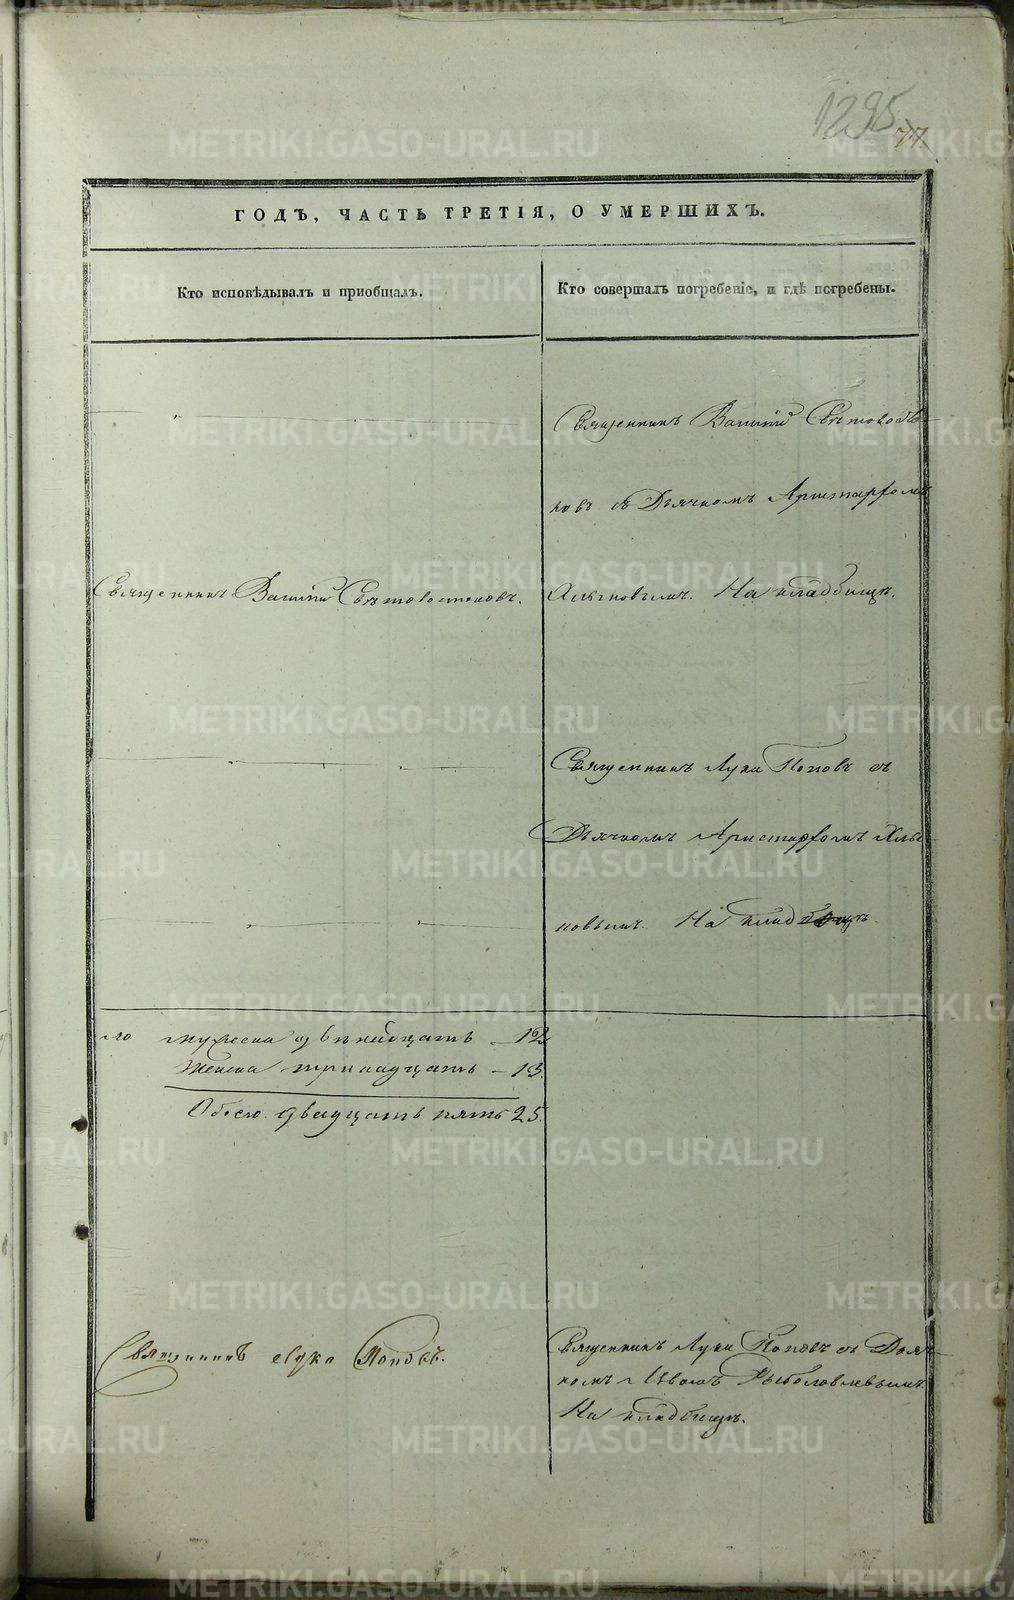 1295
77
ГОДЪ, ЧАСТЬ ТРЕТІЯ, О УМЕРШИХЪ.
Кто исповѣдывалъ и пріобщалъ.
Кто совершалъ погребеніе, и гдѣ погребены.
Священникъ Василій
ковъ съ Дьячкомъ Аристархомъ
Священникъ Василій Свѣтовостоковъ.
На кладбищѣ.
Священникъ Лука Поповъ съ
Дьячкомъ Аристархомъ
новымъ. На кладбищѣ
го мужеска двѣнадцать 12
Женска тринадцать - 13.
Обоего двадцать пять 25.
Священникъ Лука Поповъ.
Священникъ Лука Поповъ съ Дьяч-
комъ Рыболовлевымъ.
На кладбищѣ.
METRIKI.GASO-URAL.RU